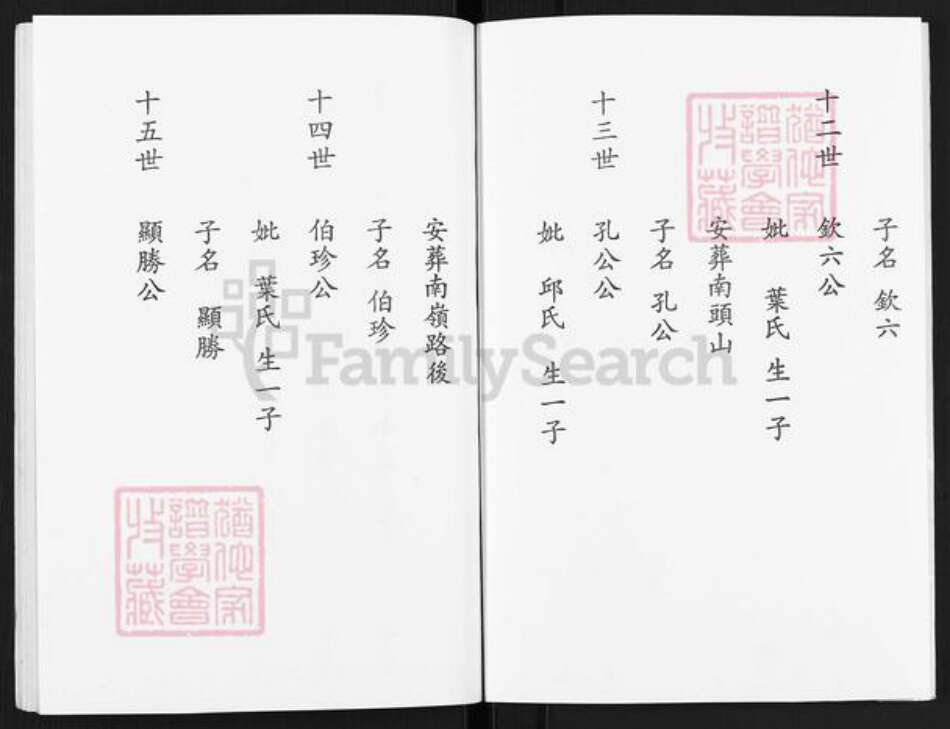 子名 欽六
十二世 欽六公
妣 葉氏 生一子
安葬南頭山
子名 孔公
十三世 孔公公
妣 邱氏 生一子
安葬南嶺路後
子名 伯珍
十四世 伯珍公
妣 葉氏 生一子
子名 顯勝
十五世 顯勝公
猶他家
譜學會
收藏
猶他家
譜學會
收藏
FamilySearch